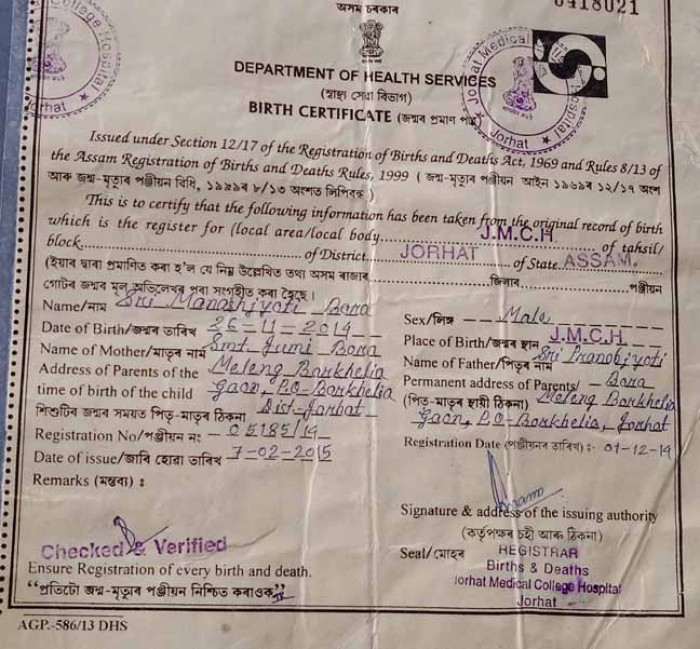 অসম চৰকাৰ
0418021
College Hospital
Jorhat
Jorhat Medical College Hospital
Jorhat
DEPARTMENT OF HEALTH SERVICES
(স্বাস্থ্য সেৱা বিভাগ)
BIRTH CERTIFICATE (জন্মৰ প্ৰমাণ পত্ৰ)
Issued under Section 12/17 of the Registration of Births and Deaths Act, 1969 and Rules 8/13 of
the Assam Registration of Births and Deaths Rules, 1999 ( জন্ম-মৃত্যুৰ পঞ্জীয়ন আইন ১৯৬৯ৰ ১২/১৭ অংশ
আৰু জন্ম-মৃত্যুৰ পঞ্জীয়ন বিধি, ১৯৯৯ৰ ৮/১৩ অংশত লিপিবদ্ধ )
This is to certify that the following information has been taken from the original record of birth
which is the register for (local area/local body J.M.C.H. of tahsil/
block of District JORHAT of State ASSAM.
(ইয়াৰ দ্বাৰা প্ৰমাণিত কৰা হ'ল যে নিম্ন উল্লেখিত তথ্য অসম ৰাজ্যৰ জিলাৰ পঞ্জীয়ন
গোটৰ জন্মৰ মূল অভিলেখৰ পৰা সংগৃহীত কৰা হৈছে।
Name/নাম Sri Manashjyoti Bora
Sex/লিঙ্গ - Male
Date of Birth/জন্মৰ তাৰিখ 26-11-2014
Place of Birth/জন্মৰ স্থান J.M.C.H.
Name of Mother/মাতৃৰ নাম Smt Jumi Bora
Name of Father/পিতৃৰ নাম Sri Pranabjyoti Bora
Address of Parents of the
time of birth of the child
শিশুটিৰ জন্মৰ সময়ত পিতৃ-মাতৃৰ ঠিকনা
Meleng Borkhelia
Gaon, P.O-Borkhelia
Dist-Jorhat
Permanent address of Parents/
(পিতৃ-মাতৃৰ স্থায়ী ঠিকনা) Meleng Borkhelia
Gaon, P.O-Borkhelia, Jorhat
Registration No/পঞ্জীয়ন নং - 05185/14
Registration Date (পঞ্জীয়নৰ তাৰিখ) :- 01-12-14
Date of issue/জাৰি হোৱা তাৰিখ 7-02-2015
Remarks (মন্তব্য) :
Signature & address of the issuing authority
(কৰ্তৃপক্ষৰ চহী আৰু ঠিকনা)
Checked & Verified
Seal/মোহৰ
REGISTRAR
Births & Deaths
Jorhat Medical College Hospital
Jorhat
Ensure Registration of every birth and death.
“প্ৰতিটো জন্ম-মৃত্যুৰ পঞ্জীয়ন নিশ্চিত কৰাওক”
AGP.-586/13 DHS